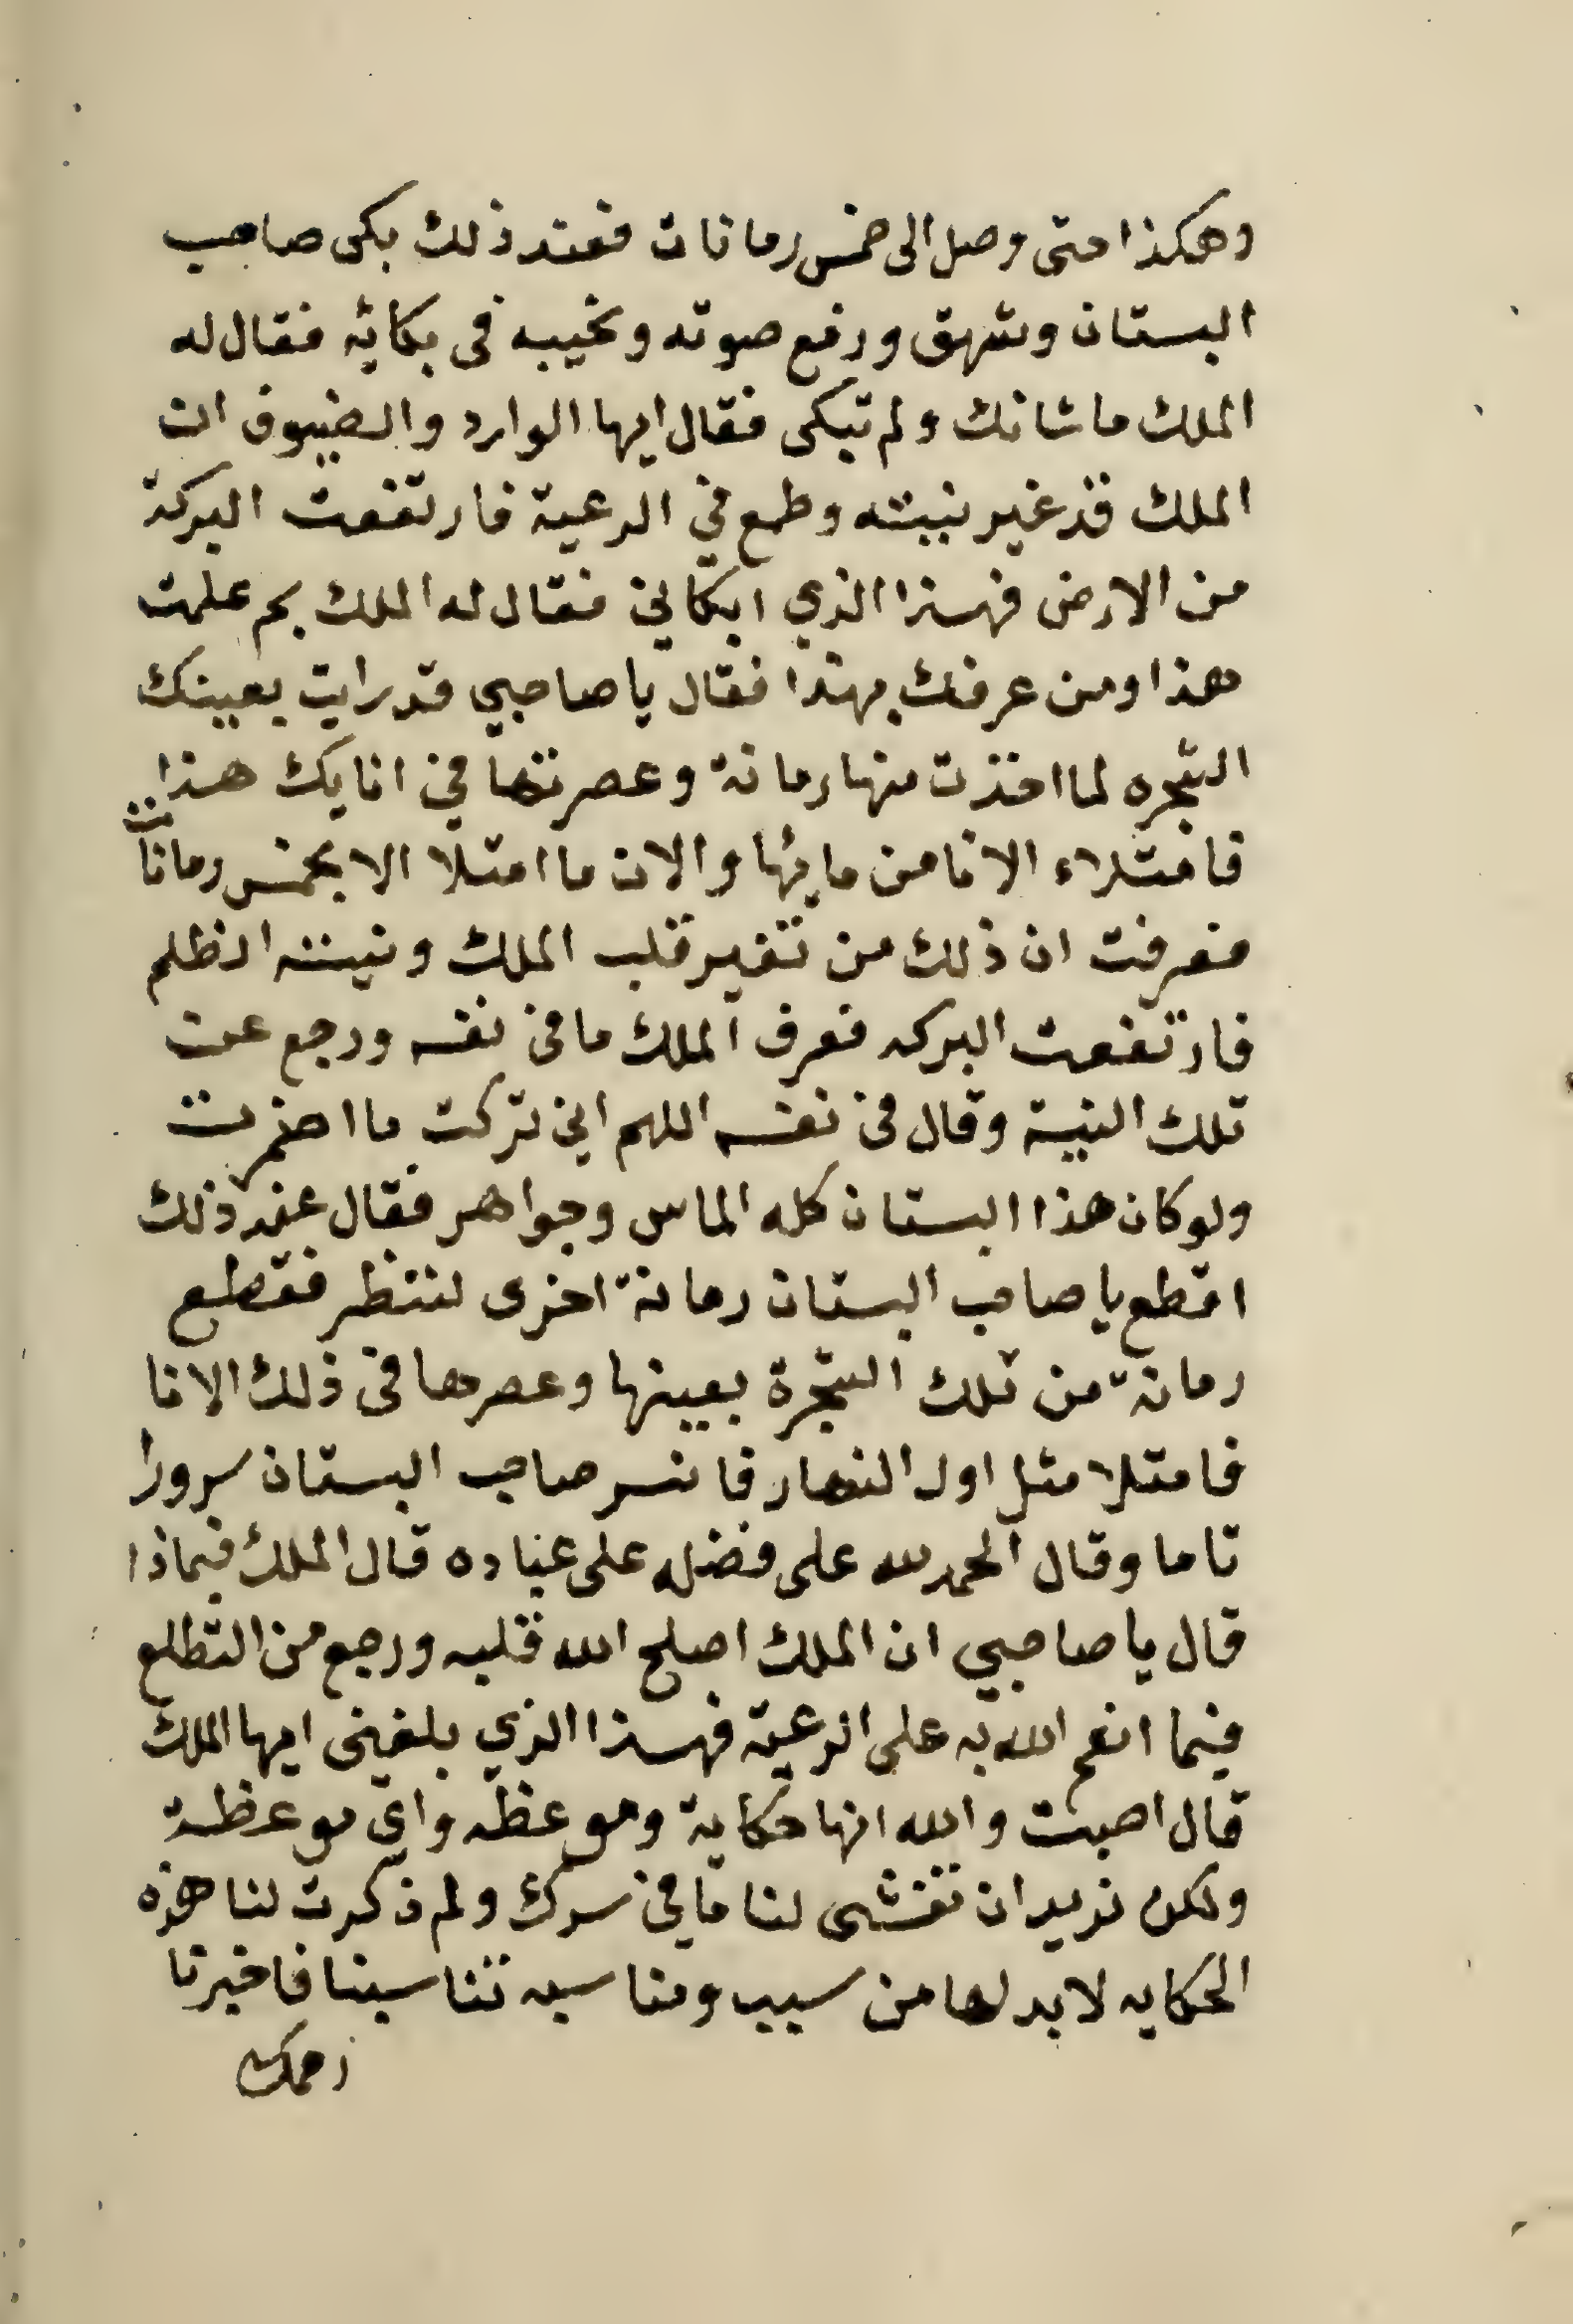 وهكذا حتى وصل الى خمس رمانات فعند ذلك بكى صاحب
البستان وشهق ورفع صوته ونحيبه فى بكائه فقال له
الملك ما شانك ولم تبكى فقال ايها الوارد والضيوف ان
الملك قد غير نيته وطمع في الرعية فارتفعت البركة
من الارض فهذا الذي ابكاني فقال له الملك بم علمت
هذا ومن عرفك بهذا فقال يا صاحبي قد رايت بعينك
الشجره لما اخذت منها رمانة وعصرتها في انايك هذا
فامتلاء الانا من مائها والان ما امتلا الا بخمس رمانات
فعرفت ان ذلك من تغير قلب الملك ونيته الظلم
فارتفعت البركه فعرف الملك ما فى نفسه ورجع عن
تلك النية وقال فى نفسه اللهم اني تركت ما اضمرت
ولو كان هذا البستان كله الماس وجواهر فقال عند ذلك
اقطع يا صاحب البستان رمانة اخرى لننظر فقطع
رمانة من تلك الشجرة بعينها وعصرها فى ذلك الانا
فامتلا مثل اول النهار فانسر صاحب البستان سرورا
تاما وقال الحمد لله على فضله على عباده قال الملك فبماذا
قال يا صاحبي ان الملك اصلح الله قلبه ورجع من التطلع
فيما انعم الله به على الرعية فهذا الذي بلغنى ايها الملك
قال اصبت والله انها حكاية وموعظه واي موعظة
ولكن نريد ان تفشى لنا ما في سرك ولم ذكرت لنا هذه
الحكايه لابد لها من سبب ومناسبه تناسبنا فاخبرنا
رحمك